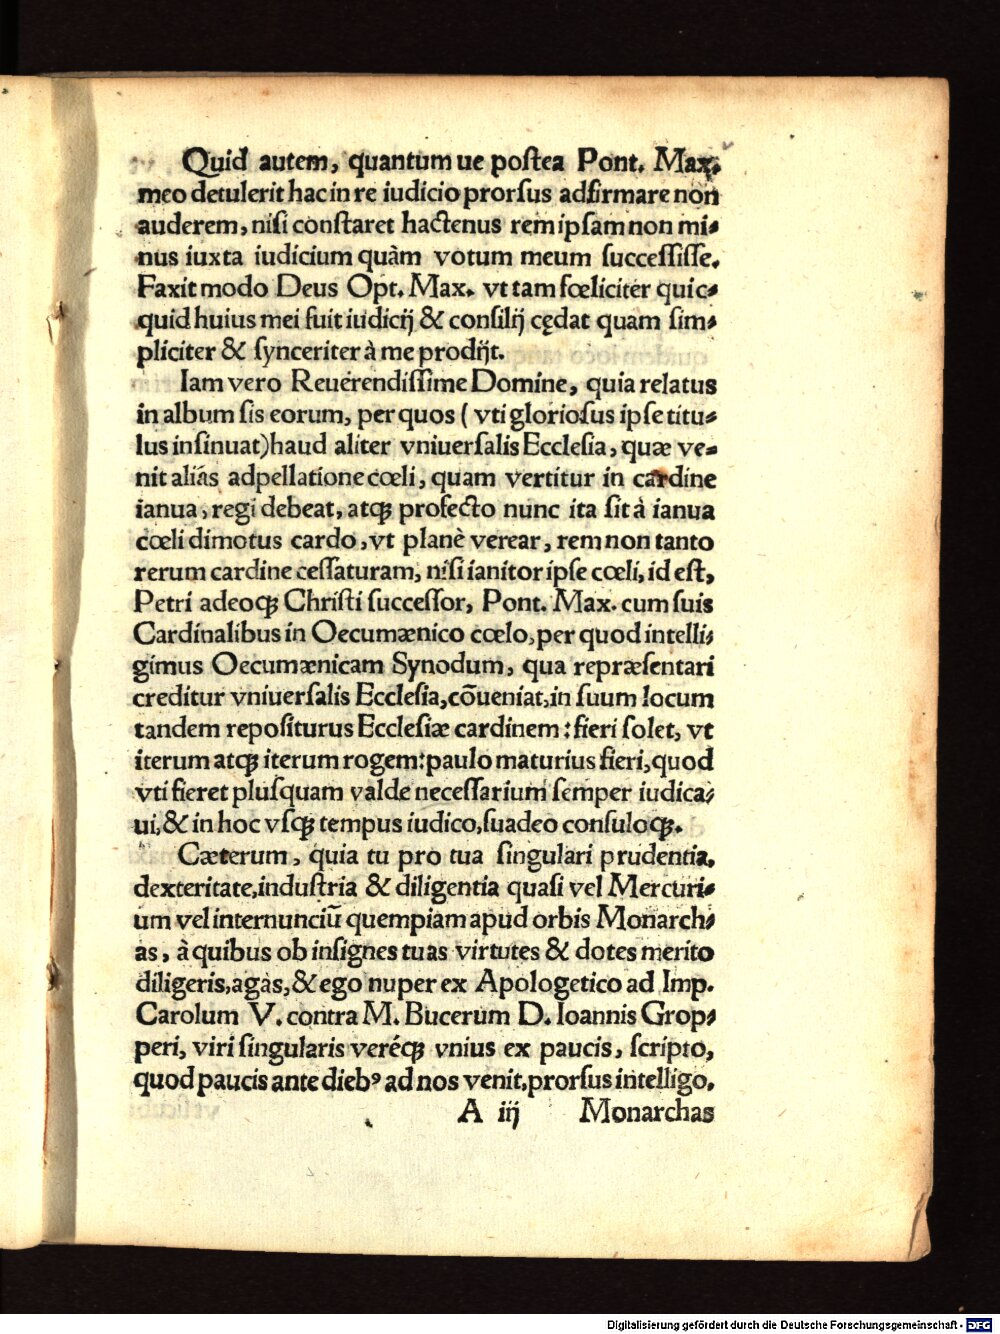 Quid autem, quantum ue poſtea Pont. Max.
meo detulerit hac in re iudicio prorſus adfirmare non
auderem, niſi conſtaret hactenus rem ipſam non mi⸗
nus iuxta iudicium quàm votum meum ſucceſſiſſe.
Faxit modo Deus Opt. Max. vt tam fœliciter quic⸗
quid huius mei fuit iudicij & conſilij cędat quam ſim⸗
pliciter & ſynceriter à me prodijt.
Iam vero Reuerendiſſime Domine, quia relatus
in album ſis eorum, per quos ( vti glorioſus ipſe titu⸗
lus inſinuat) haud aliter vniuerſalis Eccleſia, quæ ve⸗
nit aliás adpellatione cœli, quam vertitur in cardine
ianua, regi debeat, atqꝫ profecto nunc ita ſit à ianua
cœli dimotus cardo, vt planè verear, rem non tanto
rerum cardine ceſſaturam, niſi ianitor ipſe cœli, id eſt,
Petri adeoqꝫ Chriſti ſucceſſor, Pont. Max. cum ſuis
Cardinalibus in Oecumænico cœlo, per quod intelli⸗
gimus Oecumænicam Synodum, qua repræſentari
creditur vniuerſalis Eccleſia, cõueniat, in ſuum locum
tandem repoſiturus Eccleſiæ cardinem: fieri ſolet, vt
iterum atqꝫ iterum rogem: paulo maturius fieri, quod
vti fieret pluſquam valde neceſſarium ſemper iudica⸗
ui, & in hoc vſqꝫ tempus iudico, ſuadeo conſuloqꝫ.
Cæterum, quia tu pro tua ſingulari prudentia,
dexteritate, induſtria & diligentia quaſi vel Mercuri⸗
um vel internunciũ quempiam apud orbis Monarch⸗
as, à quibus ob inſignes tuas virtutes & dotes merito
diligeris, agas, & ego nuper ex Apologetico ad Imp.
Carolum V. contra M. Bucerum D. Ioannis Grop⸗
peri, viri ſingularis veréqꝫ vnius ex paucis, ſcripto,
quod paucis ante diebꝰ ad nos venit, prorſus intelligo,
A iij Monarchas
Digitalisierung gefördert durch die Deutsche Forschungsgemeinschaft - DFG